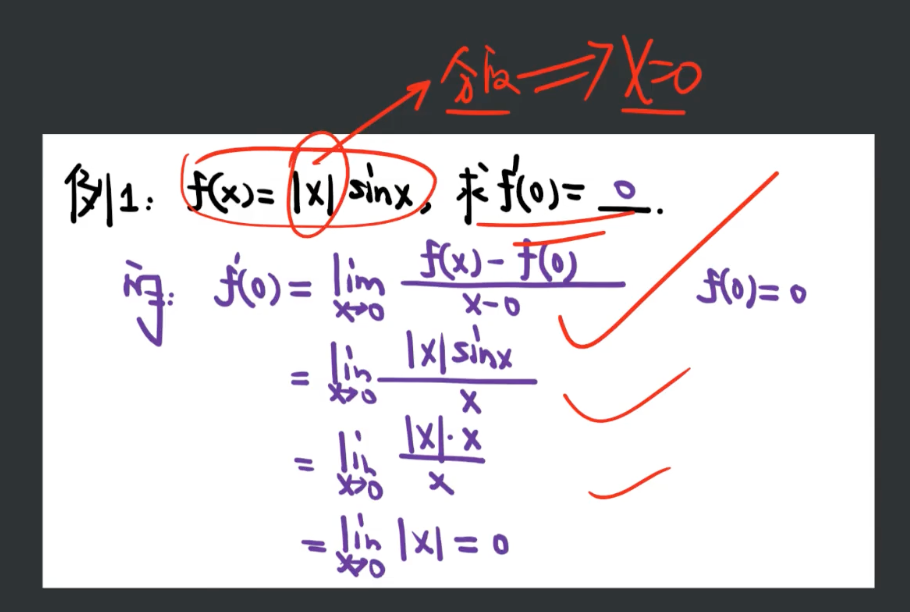 分段 ⟹ x=0
例1: f(x)= |x| sinx, 求 f'(0)= 0 .
解: f'(0) = lim x→0 (f(x) - f(0))/(x-0) f(0)=0
= lim x→0 |x| sinx / x
= lim x→0 |x|·x / x
= lim x→0 |x| = 0